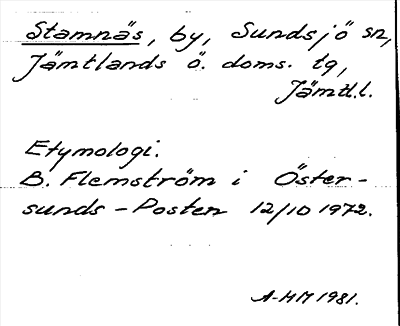 Stamnäs, by, Sundsjö sn,
Jämtlands ö. doms. tg,
Jämtl.l.
Etymologi.
B. Flemström i Öster-
sunds-Posten 12/10 1972.
A-HM 1981.